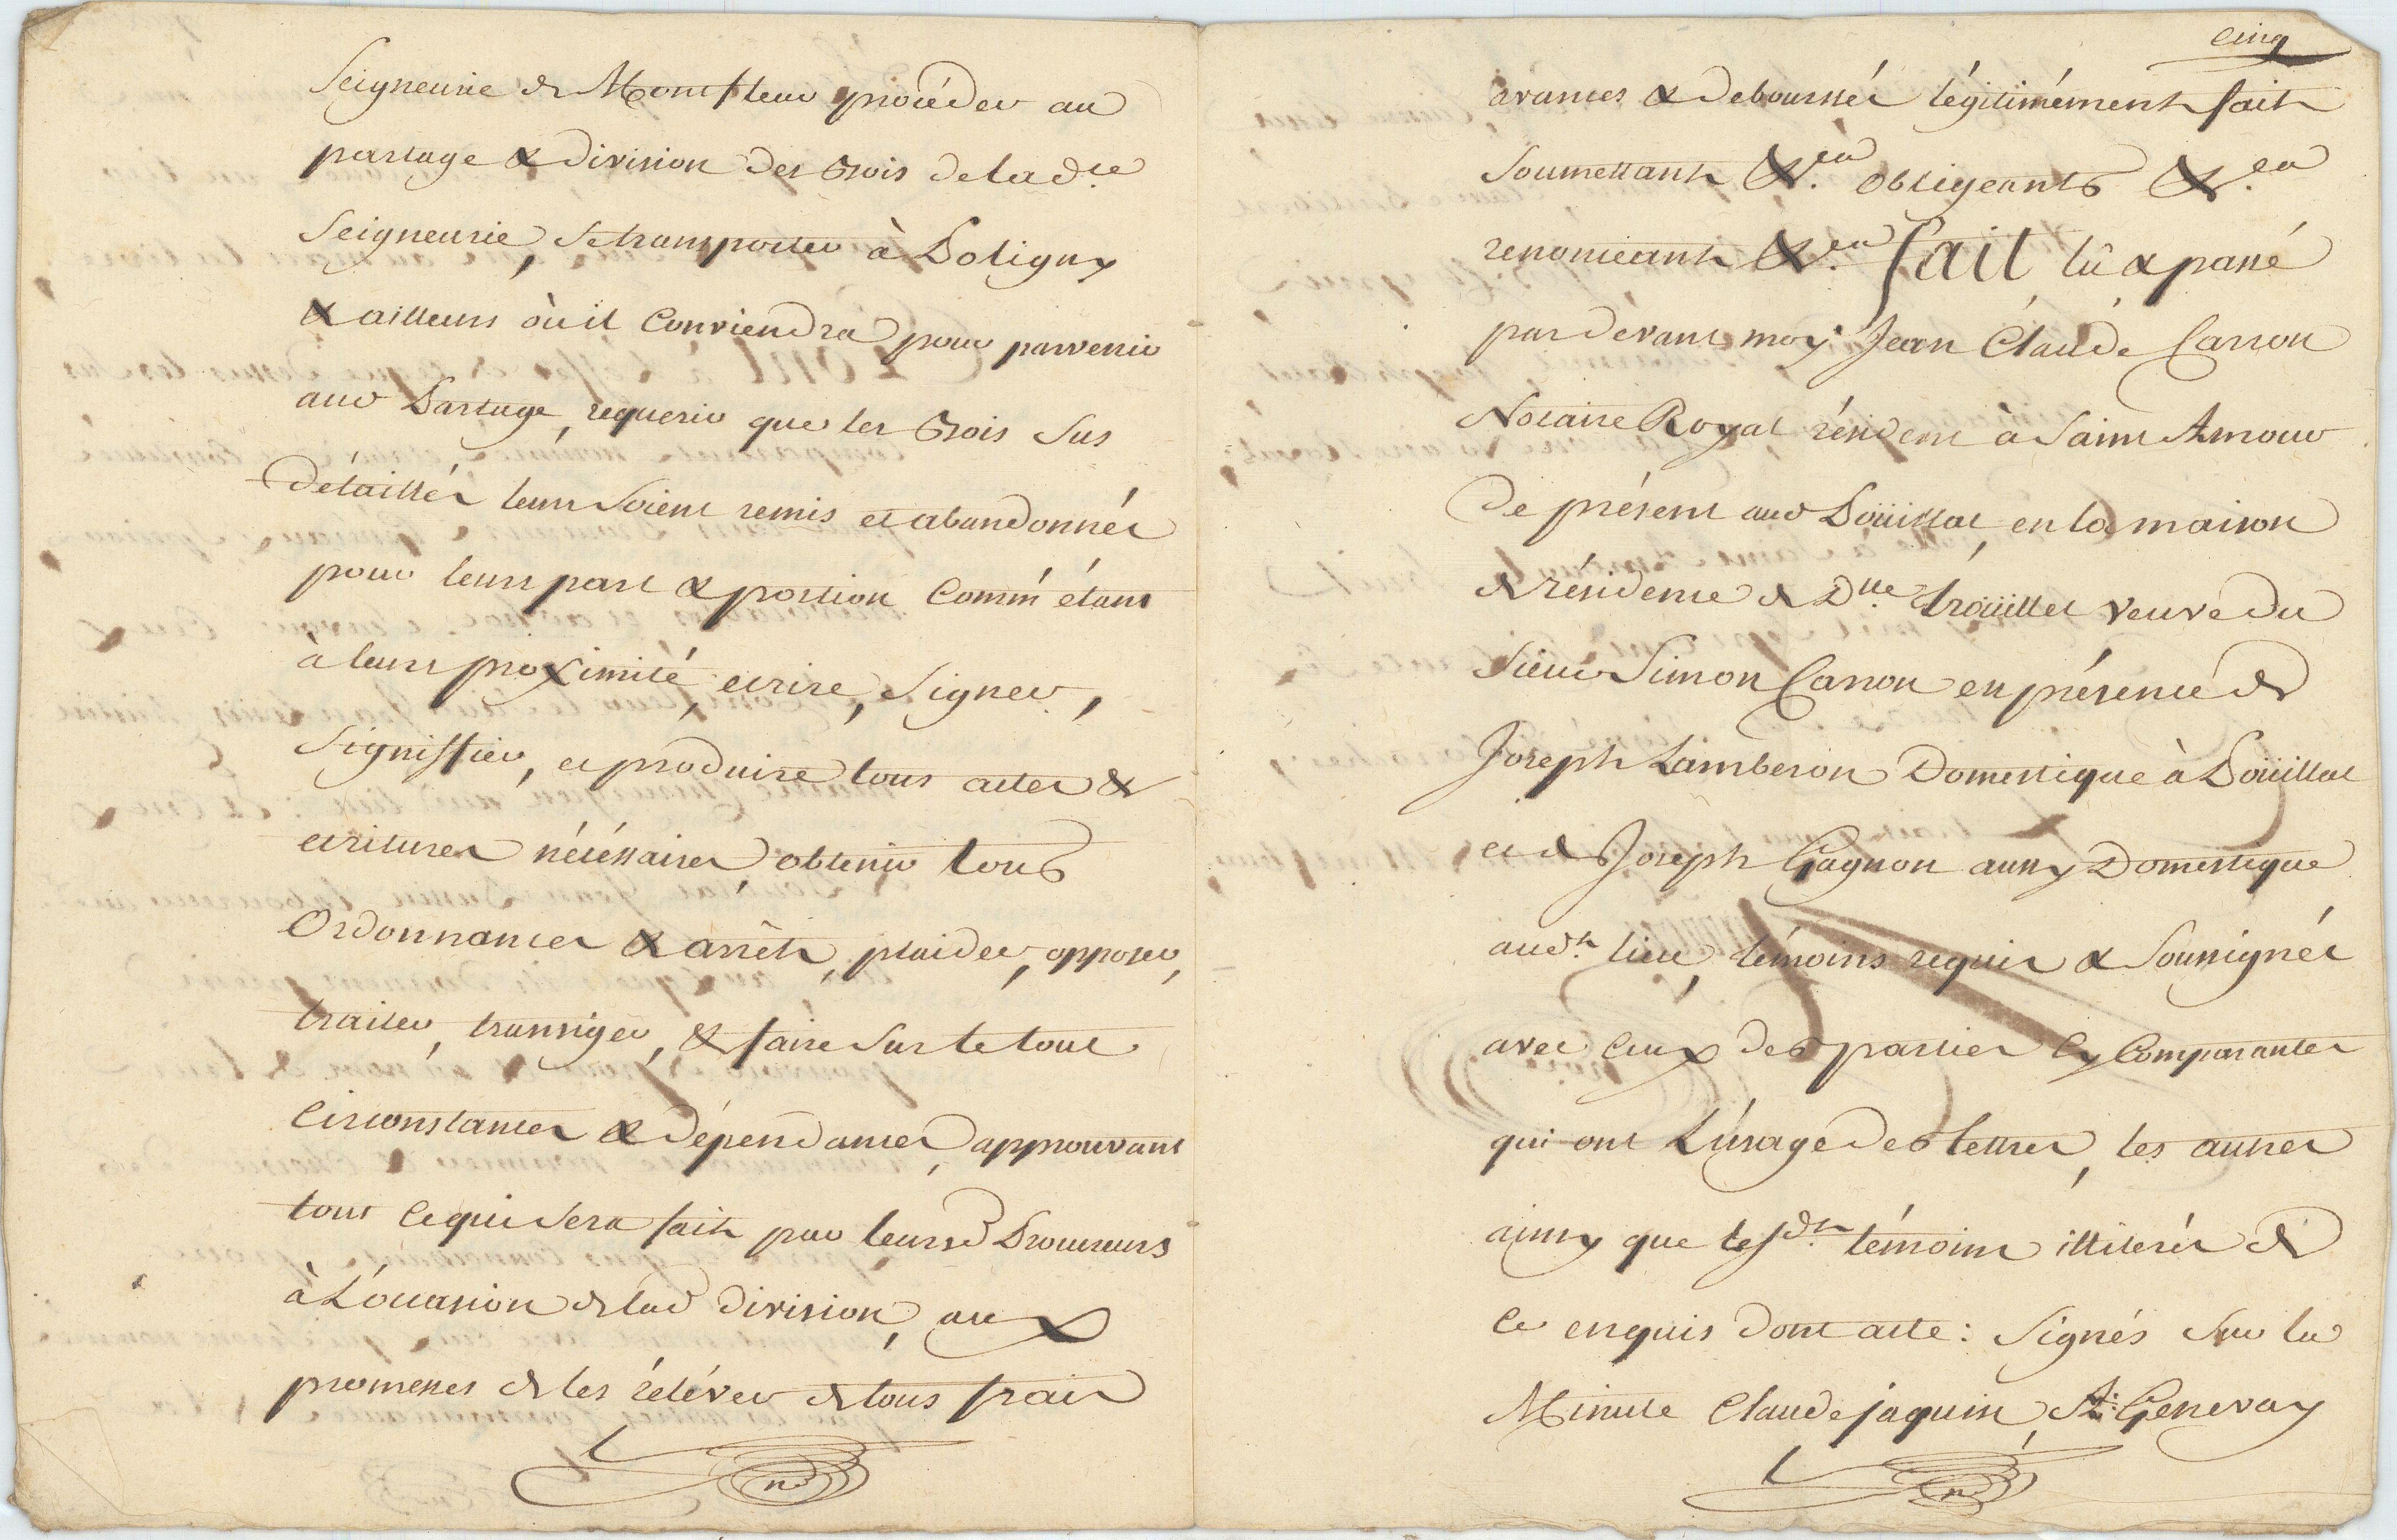 Seigneurie de Montfleur procéder au
partage & division des Bois de ladte
Seigneurie, se transporter à Poligny
& ailleurs où il Conviendra pour parvenir
aud Partage, requerir que les Bois sus
détaillés leurs soient remis et abandonnés
pour leurs part & portion Comm' étant
à leurs proximité, ecrire, signer,
signiffier, et produire tous actes &
ecritures nécéssaires, obtenir tous
Ordonnances & arrêts, plaider, opposer,
traiter, transiger, & faire sur le tout
Circonstances & dépendances, approuvant
tout ce qui sera fait par leursd Procureurs
à L'occasion de lad division, aux
promesses de les réléver de tous frais
cinq
avances & deboursés légitimément fait
Soumettant &.ca obligeants &.ca
renonceant &.ca fait lû & passé
par devant moy Jean Claude Carron
Notaire Royal résident à Saint Amour
de présent aud Poüillat, en la maison
de résidence de Dlle Troüillet veuve du
Sieur Simon Carron en présence de
Joseph Lamberon Domestique à Poüillat
et de Joseph Gagnon aussy Domestique
audt lieu, témoins requis & soussignés
avec ceux des parties Cy Comparantes
qui ont L'usage des lettres, les autres
ainsy que lesdts témoins illiterés de
ce enquis dont acte: Signés sur la
Minute Claude jaquin, Genevay